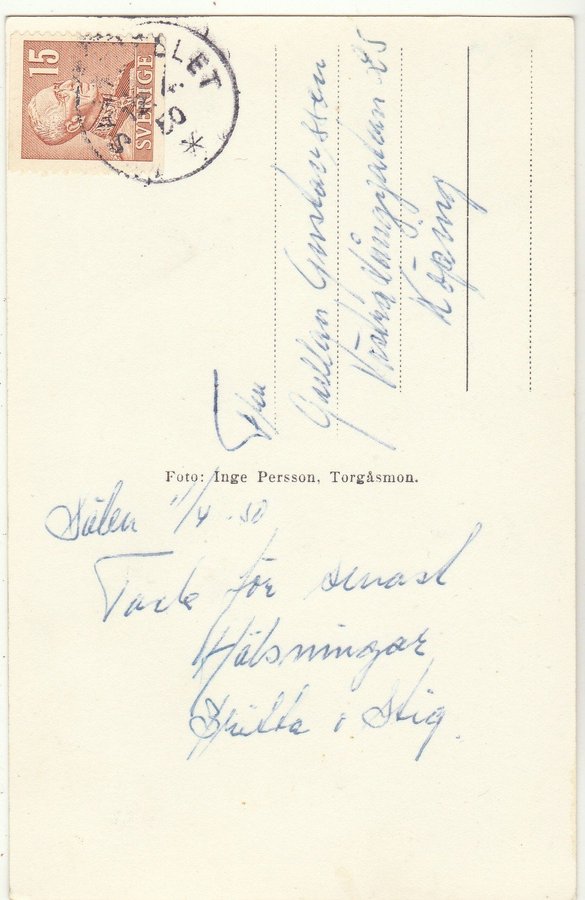 15
SVERIGE
Fru
Gullan Gustavsson
Västra Långgatan 25
Köping
Foto: Inge Persson, Torgåsmon.
Sälen 11/4 -50
Tack för senast
Hälsningar
Britta o Stig.